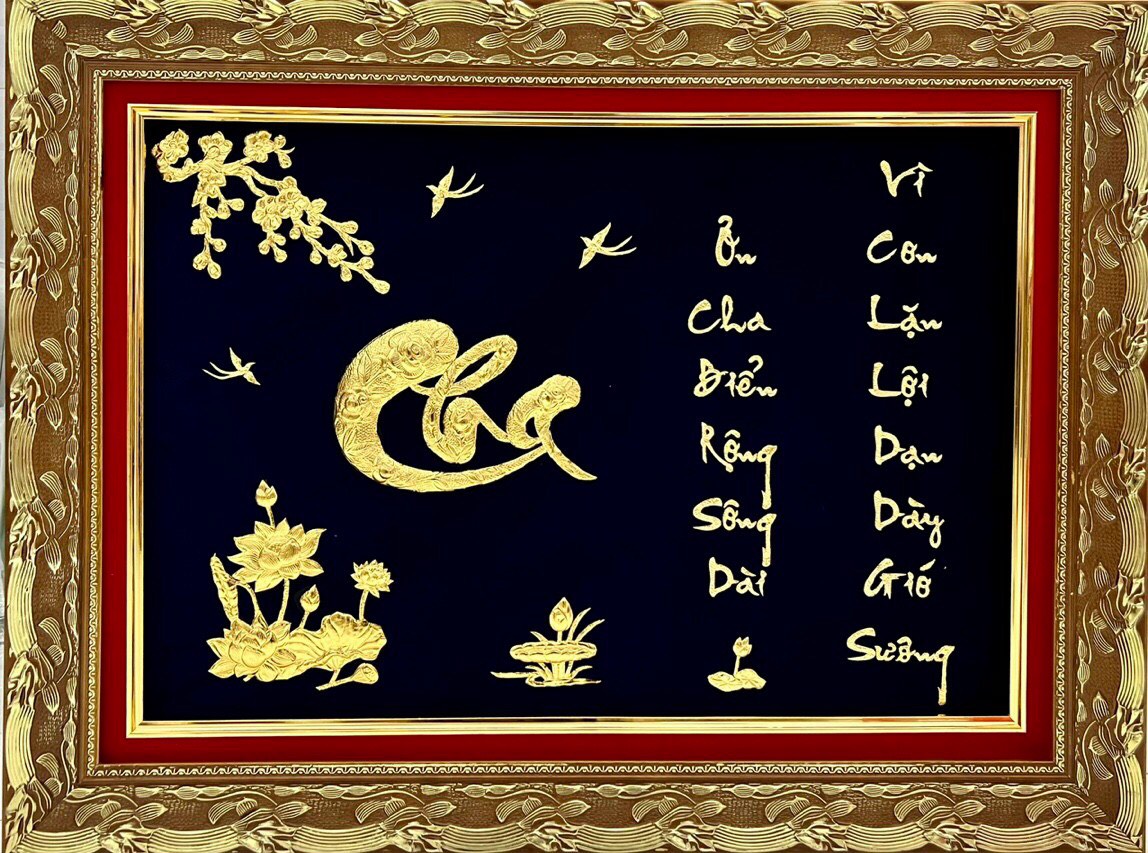 Cha
Ơn Cha Biển Rộng Sông Dài
Vì Con Lặn Lội Dạn Dày Gió Sương